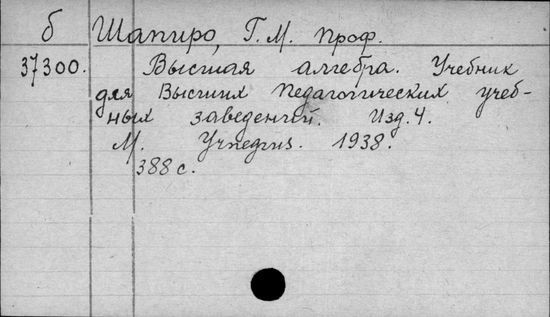 б Шапиро, Г. М. проф.
37300. Высшая алгебра. Учебник
для высших педагогических учеб-
ных заведений. Изд. 4.
М. Учпедгиз. 1938.
388 с.